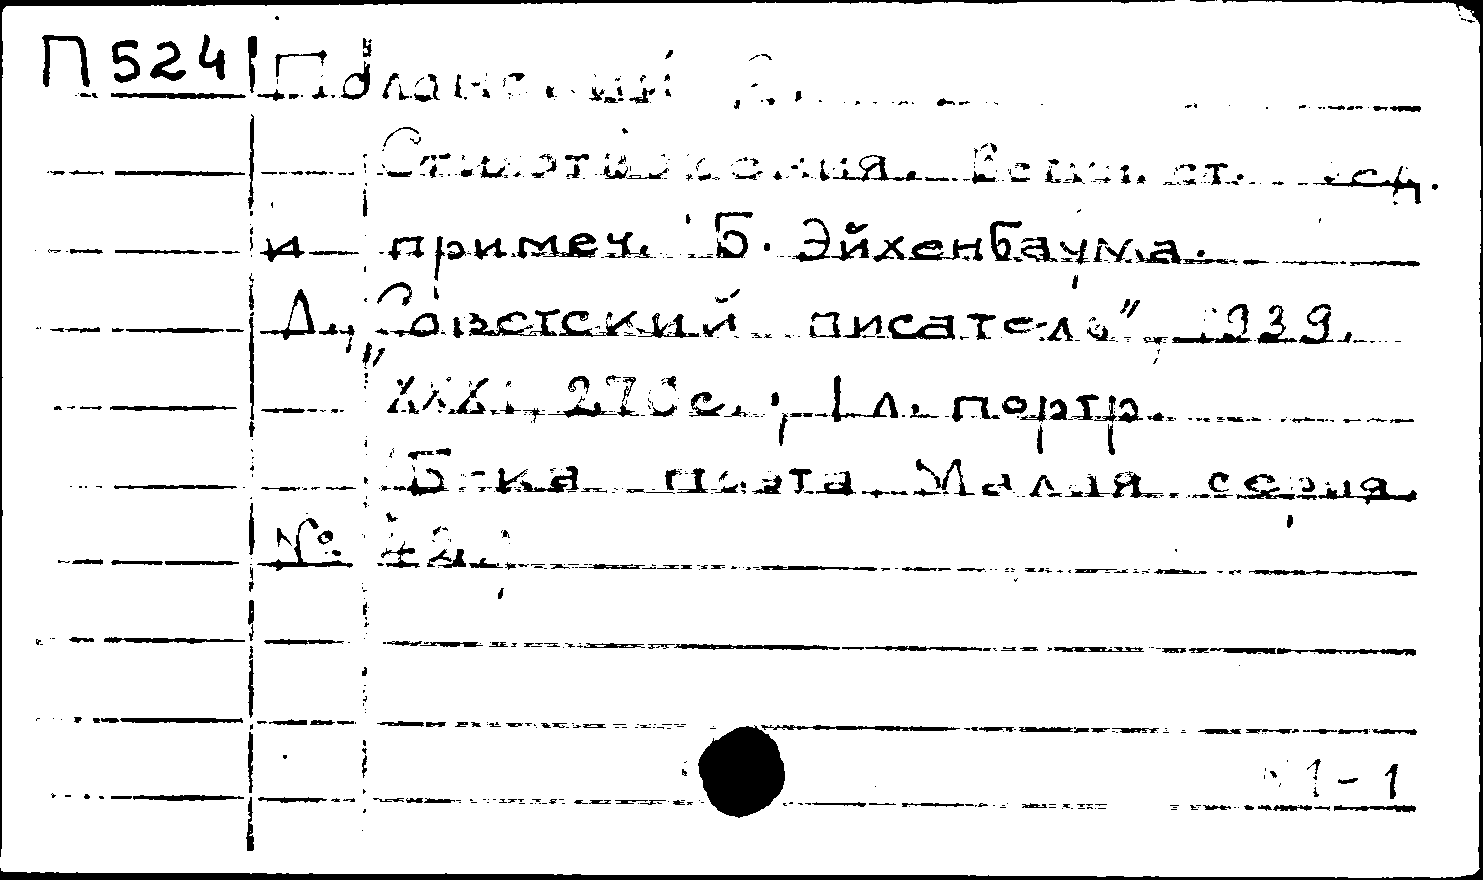 П524 Полонский Я.
Стихотворения. Вступ. ст. ред.
и примеч. Б. Эйхенбаума.
Л., „Советский писатель", 1939.
XXXI, 270 с.; 1 л. портр.
Б-ка поэта Малая серия.
№ 42.
1-1